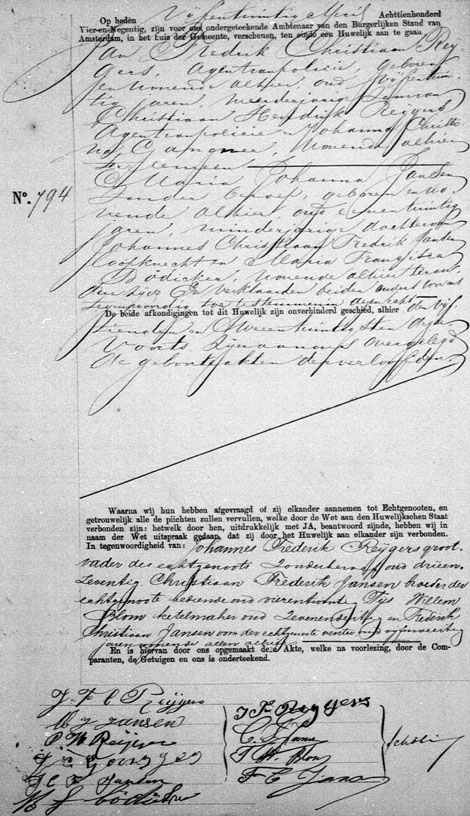 Op heden Achttienhonderd
Vier-en-Negentig, zijn voor ons ondergeteekende Ambtenaar van den Burgerlijken Stand van
Amsterdam, in het Huis der Gemeente, verschenen, ten einde een Huwelijk aan te gaan
Jan Frederik Christiaan Reij
gers, Agent van policie geboren
en wonende alhier, oud vijfentwin
tig jaren, meerderjarige zoon van
Christiaan Hendrik Reijgers
Agent van policie en Johanna Christi
na wonende alhier
N°. 794
En Maria Johanna Jansen
zonder beroep, geboren en wo
nende alhier, oud eenentwintig
jaren, minderjarige dochter van
Johannes Christiaan Fredrik Jansen
loopknecht en Maria Franziska
Bödicker, wonende alhier
De beide afkondigingen tot dit Huwelijk zijn onverhinderd geschied, alhier den vijf
tienden en tweeentwintigsten dezer
Voorts zijn aan ons overgelegd
de geboorteakten der verloofden
Waarna wij hun hebben afgevraagd of zij elkander aannemen tot Echtgenooten, en
getrouwelijk alle de plichten zullen vervullen, welke door de Wet aan den Huwelijkschen Staat
verbonden zijn: hetwelk door hen, uitdrukkelijk met JA, beantwoord zijnde, hebben wij in
naam der Wet uitspraak gedaan, dat zij door het Huwelijk aan elkander zijn verbonden.
In tegenwoordigheid van: Johannes Frederik Reijgers groot
vader des echtgenoots zonder beroep oud drieen
zeventig Christiaan Frederik Jansen broeder der
echtgenoote oud vierentwintig Tijs Willem
Blom ketelmaker oud zevenendertig en Frederik
Christiaan Jansen oom der echtgenoote
En is hiervan door ons opgemaakt deze Akte, welke na voorlezing, door de Com-
paranten, de Getuigen en ons is onderteekend.
J F C Reijgers
M J Jansen
C H Reijgers
J F Reijgers
C F Jansen
T W Blom
F C Jansen